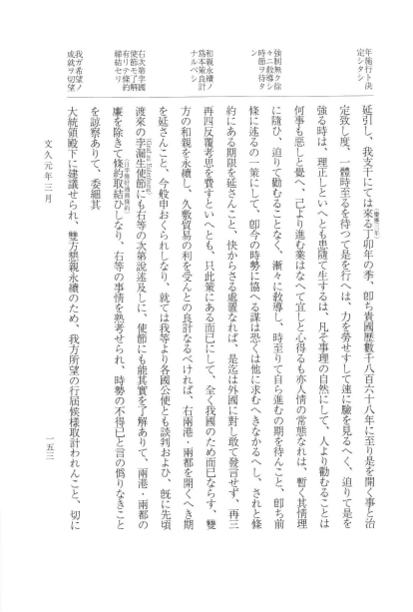 年施行ト決
定シタシ
強制無ク徐
々ニ敎導シ
時節ヲ待タ
和親永續ノ
爲本策良計
ナルベシ
右次第孛國
使節モ了解
有リテ條約
締結セリ
我ガ希望ノ
成就ヲ切望
延引し、我支干にては來る丁卯年の季、卽ち貴國曆數千八百六十八年に至り是を開く事と治
定致し度、一體時至るを待つて是を行へは、力を勞せすして速に驗を見るへく、迫りて是を
強る時は、理正しといへとも患隨て生するは、凡そ事理の自然にして、人より勸むることは
何事も惡しと覺へ、己より進む業はなへて宜しと心得るも亦人情の常態なれは、暫く其情理
に隨ひ、迫りて勸むることなく、漸々に敎導し、時至りて自ら進むの期を待んこと、卽ち前
條に述るの一策にして、卽今の時勢に協へる謀は恐くは他に求むへきなかるへし、されと條
約にある期限を延さんこと、快からさる處置なれは、是迄は外國に對し敢て發言せず、再三
再四反覆考思を費すといへとも、只此策にある而已にして、全く我國のため而已ならす、雙
方の和親を永續し、久敷貿易の利を受んとの良計なるべければ、右兩港・兩都を開くへき期
を延さんこと、今般申おくられしなり、就ては我等より各國公使とも談判およひ、旣に先頃
渡來の孛漏生使節にも右等の次第說述及しに、使節にも能其實を了解ありて、兩港・兩都の
廉を除きて條約取結ひしなり、右等の事情を熟考せられ、時勢の不得已と言の僞りなきこと
を諒察ありて、委細其
大統領殿下に建議せられ、雙方懇親永續のため、我方所望の行屆候樣取計われんこと、切に
文久元年三月
一五三